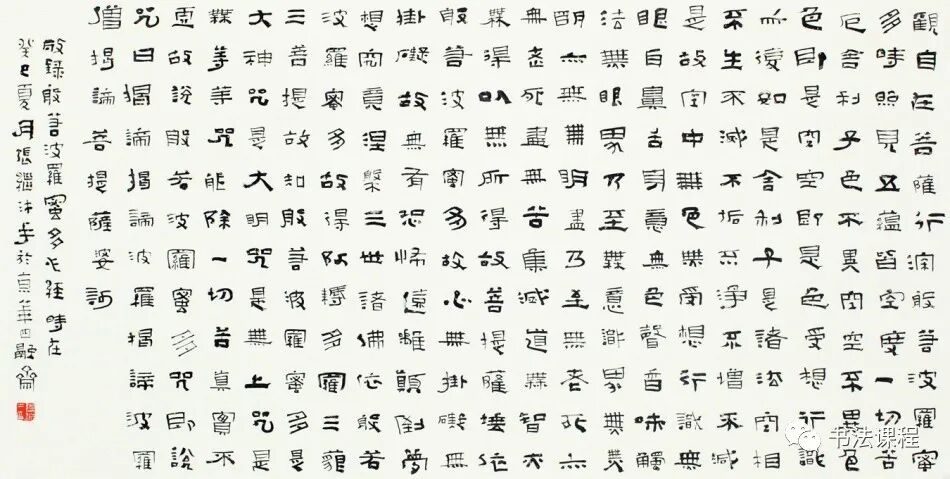 觀自在菩薩行深般若波羅蜜
多時照見五蘊皆空度一切苦
厄舍利子色不異空空不異色
色即是空空即是色受想行識
亦復如是舍利子是諸法空相
不生不滅不垢不淨不增不減
是故空中無色無受想行識無
眼耳鼻舌身意無色聲香味觸
法無眼界乃至無意識界無無
明亦無無明盡乃至無老死亦
無老死盡無苦集滅道無智亦
無得以無所得故菩提薩埵依
般若波羅蜜多故心無掛礙無
掛礙故無有恐怖遠離顛倒夢
想究竟涅槃三世諸佛依般若
波羅蜜多故得阿耨多羅三藐
三菩提故知般若波羅蜜多是
大神咒是大明咒是無上咒是
無等等咒能除一切苦真實不
虛故說般若波羅蜜多咒即說
咒曰揭諦揭諦波羅揭諦波羅
僧揭諦菩提薩婆訶
敬錄般若波羅蜜多心經時在
癸巳夏月張繼沐手於京華四融齋
书法课程